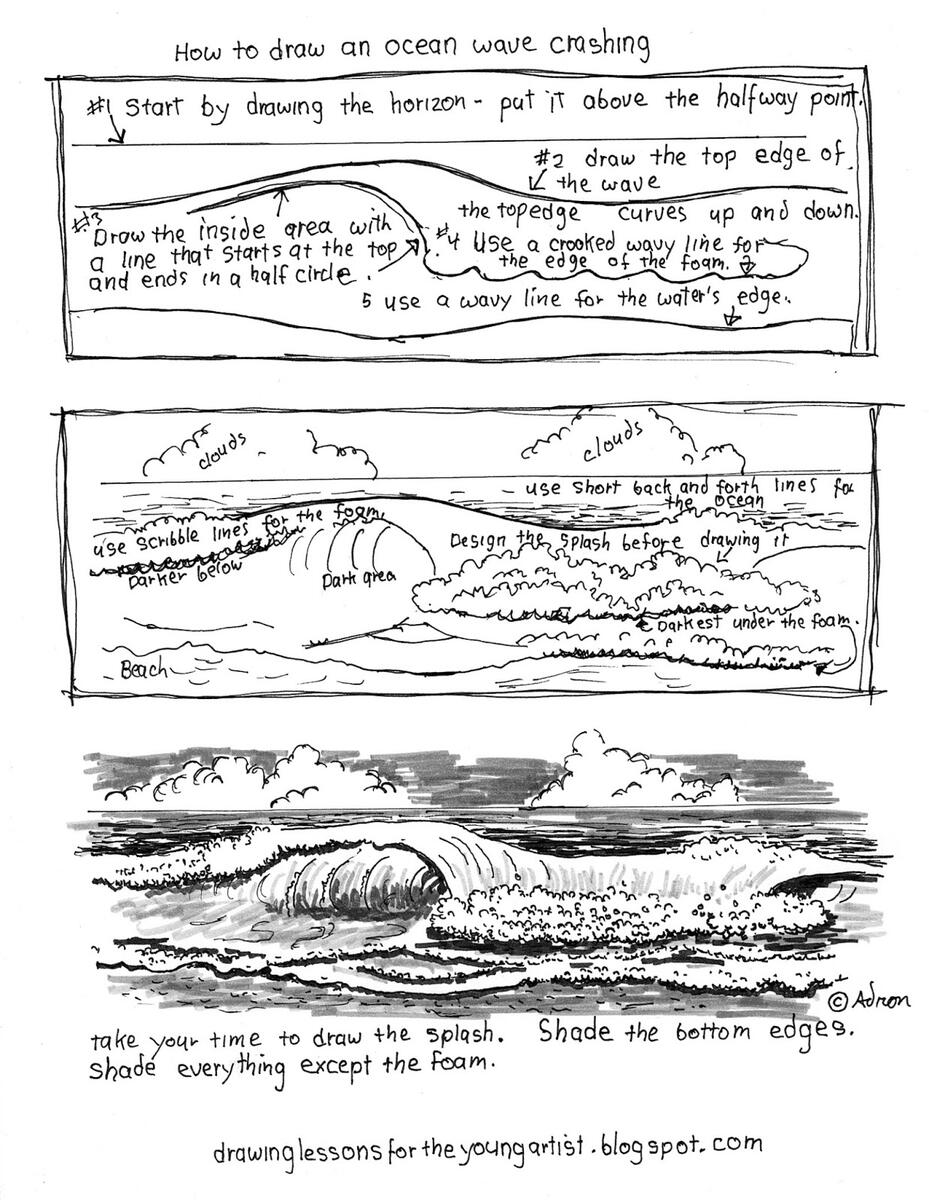 How to draw an ocean wave crashing
#1 Start by drawing the horizon - put it above the halfway point.
#2 draw the top edge of
the wave
the top edge curves up and down.
#3
Draw the inside area with
a line that starts at the top
and ends in a half circle.
#4 Use a crooked wavy line for
the edge of the foam.
5 use a wavy line for the water's edge.
clouds
clouds
use short back and forth lines for
the ocean
use scribble lines for the foam,
Darker below
Dark area
Design the splash before drawing it
Darkest under the foam.
Beach
© Adron
take your time to draw the splash. Shade the bottom edges.
shade everything except the foam.
drawinglessonsfortheyoungartist.blogspot.com